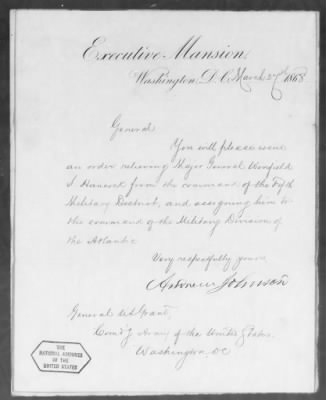 Executive Mansion,
Washington, D.C. March 27th 1868
General
You will please issue
an order relieving Major General Winfield
S Hancock from the command of the Fifth
Military District, and assigning him to
the command of the Military Division of
the Atlantic
Very respectfully yours,
Andrew Johnson
General U.S. Grant,
Comd'g Army of the United States.
Washington, DC
THE
NATIONAL ARCHIVES
OF THE
UNITED STATES